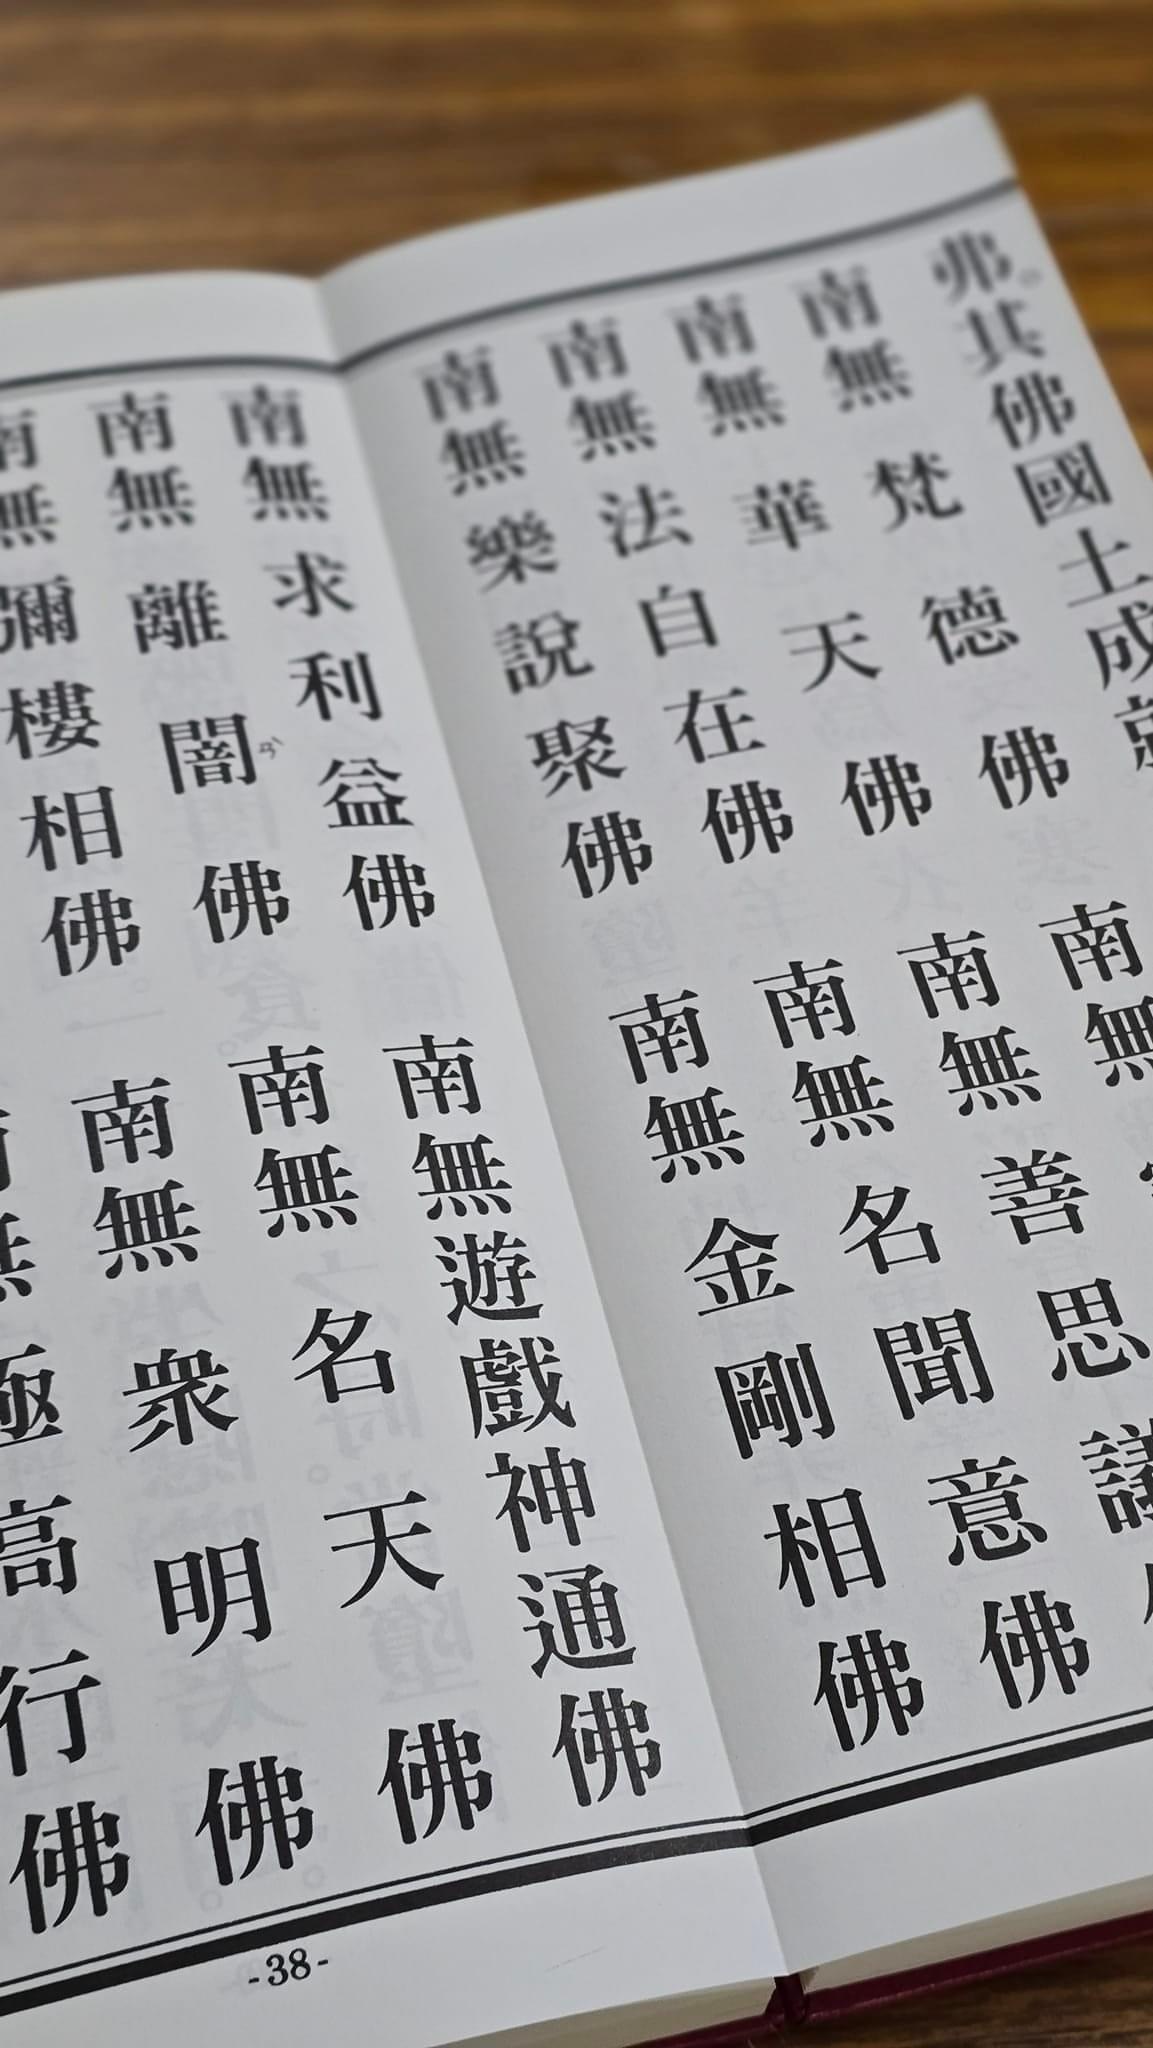 弗其佛國土成
南無梵德佛 南無
南無華天佛 南無善思議
南無法自在佛 南無名聞意佛
南無樂說聚佛 南無金剛相佛
南無求利益佛 南無遊戲神通佛
南無離闇佛 南無名天佛
南無彌樓相佛 南無眾明佛
極高行佛
-38-